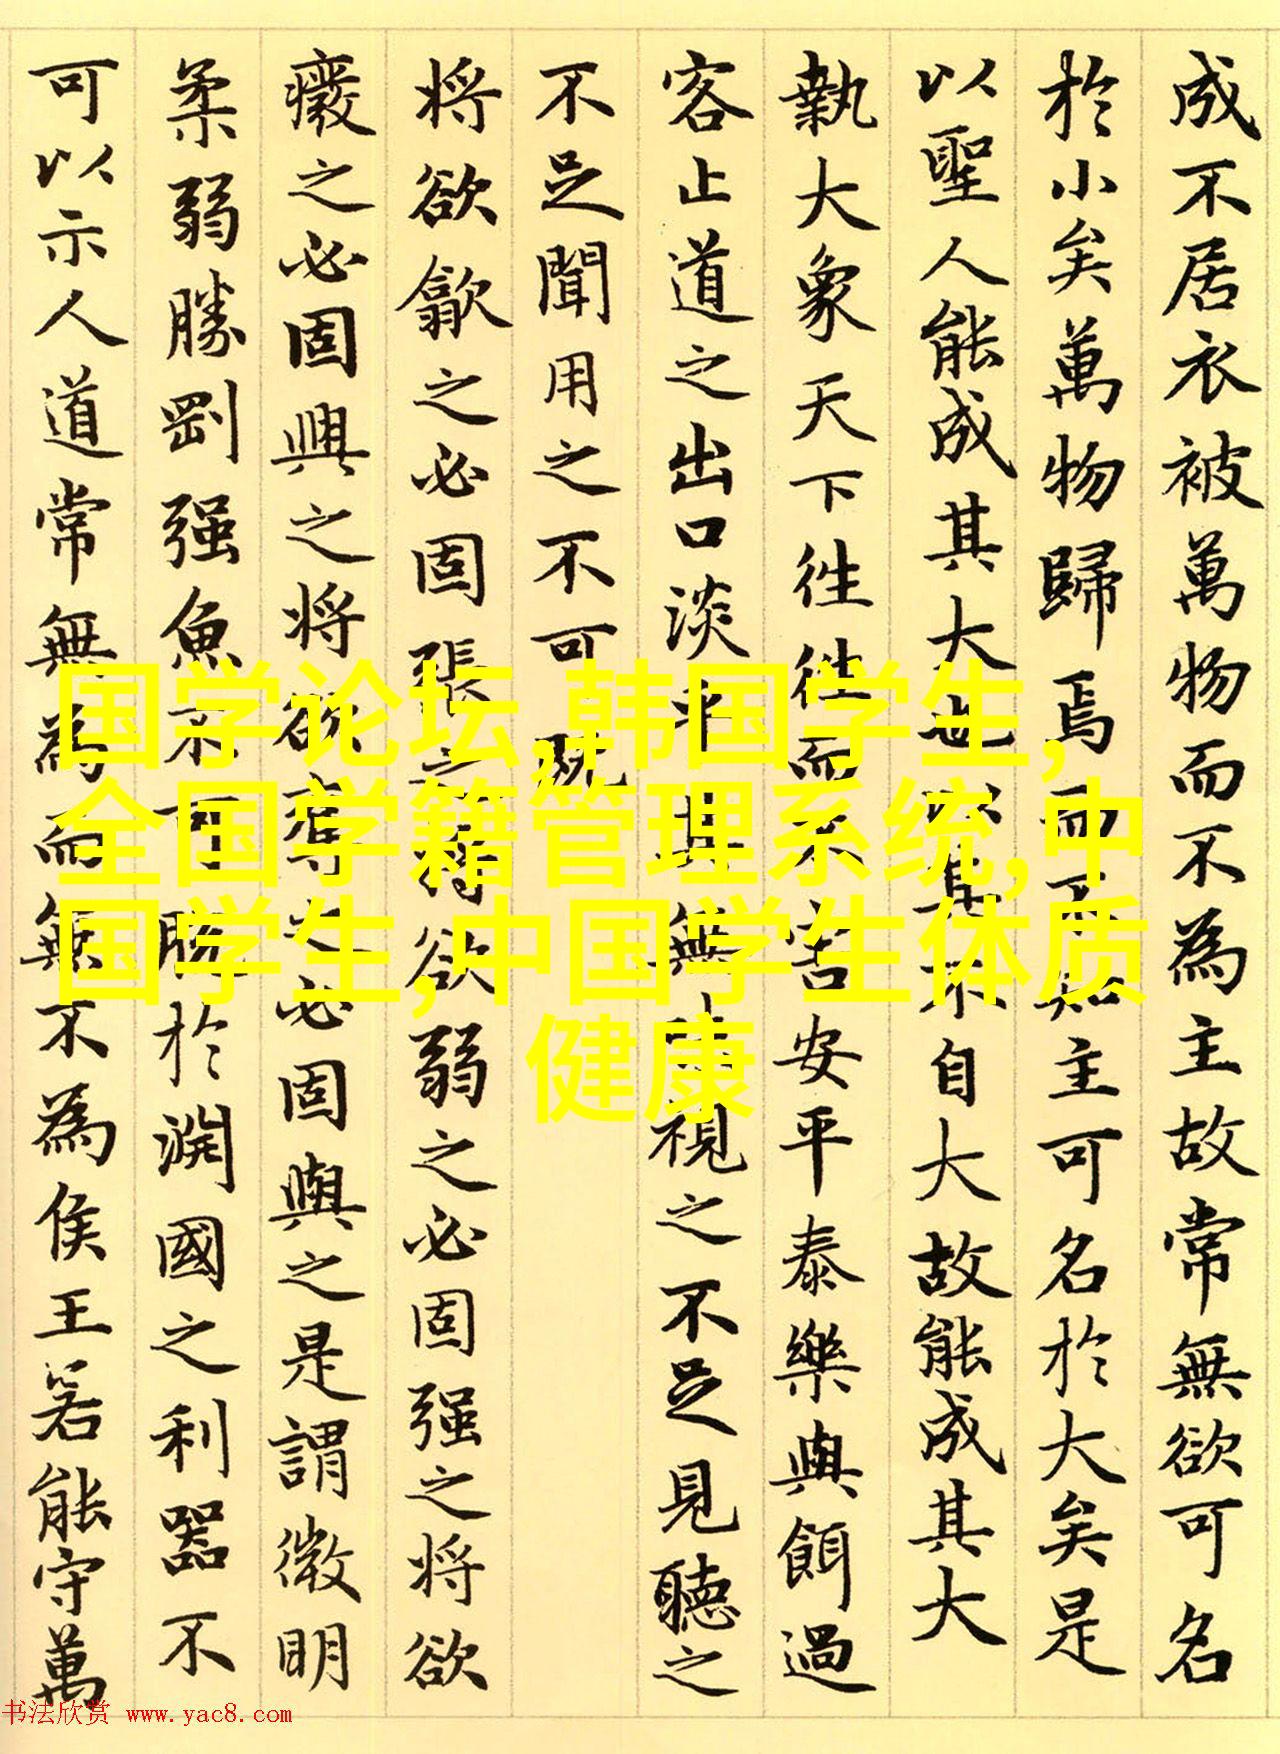 成不居衣被萬物而不為主故常無欲可名
於小矣萬物歸焉而不知主可名於大矣是
以聖人能成其大也以其不自大故能成其大
執大象天下往往而不害安平泰樂與餌過
客止道之出口淡乎其無味視之不足見聽之
不足聞用之不可既
将欲歙之必固張之将欲弱之必固强之将欲
癈之必固興之将欲奪之必固與之是謂微明
柔弱勝剛强魚不可脱於淵國之利器不
可以示人道常無為而無不為侯王若能守萬
国学论坛,韩国学生,
全国学籍管理系统,中
国学生,中国学生体质
健康
书法欣赏 www.yac8.com